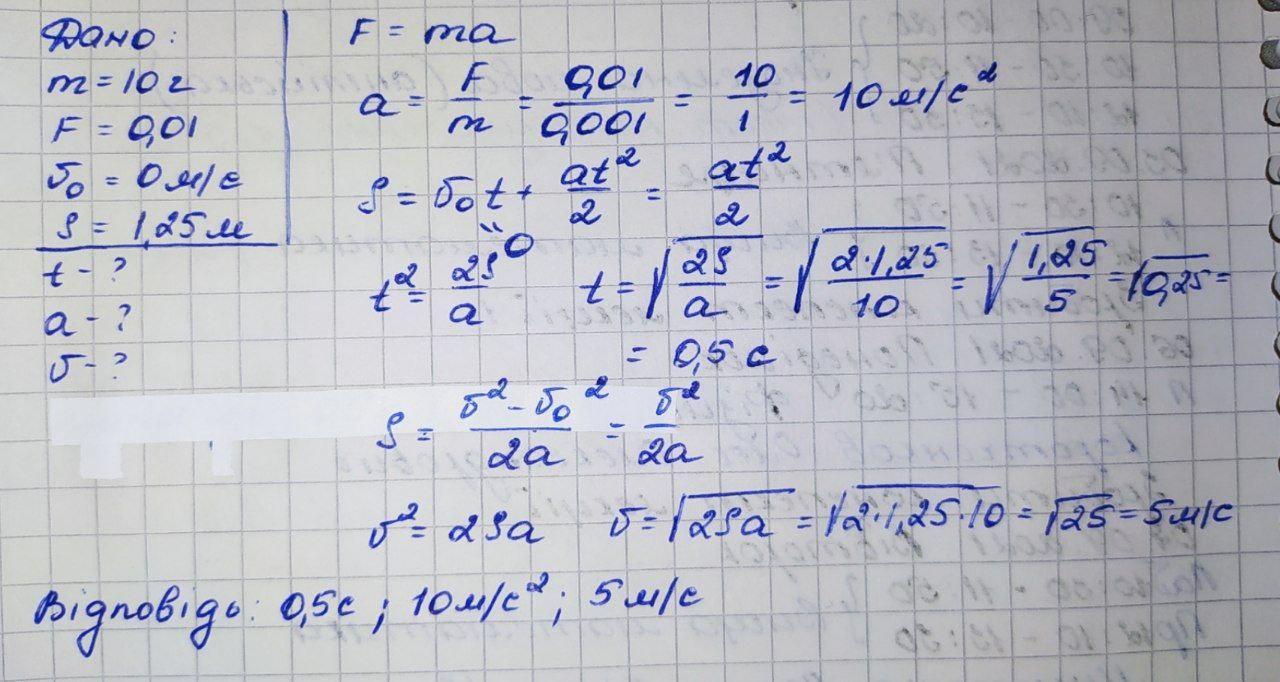 Дано:
m = 10 г
F = 0,01
υ₀ = 0 м/с
S = 1,25 м
t - ?
a - ?
υ - ?
F = ma
a = F/m = 0,01/0,001 = 10/1 = 10 м/с²
S = υ₀t + at²/2 = at²/2
" 0
t² = 2S/a t = √(2S/a) = √(2·1,25/10) = √(1,25/5) = √0,25 =
= 0,5 с
S = (υ² - υ₀²)/2a = υ²/2a
υ² = 2Sa υ = √2Sa = √2·1,25·10 = √25 = 5 м/с
Відповідь: 0,5 с ; 10 м/с² ; 5 м/с